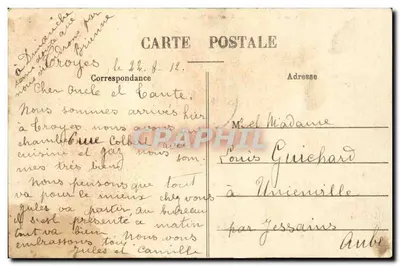 à Dimanche
nous
Etienne
CARTE POSTALE
Troyes le 22. 8. 12.
Correspondance
Adresse
Cher Oncle et Tante.
Nous sommes arrivés hier
à Troyes, nous avons
chambre
cuisine et gaz nous som
mes très bien
Nous pensons que tout
va pour le mieux chez vous
Jules va partir, au bureau
il s'est présenté ce matin
tout va bien. Nous vous
embrassons tous
Jules et Camille
M. et Madame
Louis Guichard
à Unienville
par Jessains
Aube
CPAPHIL.com